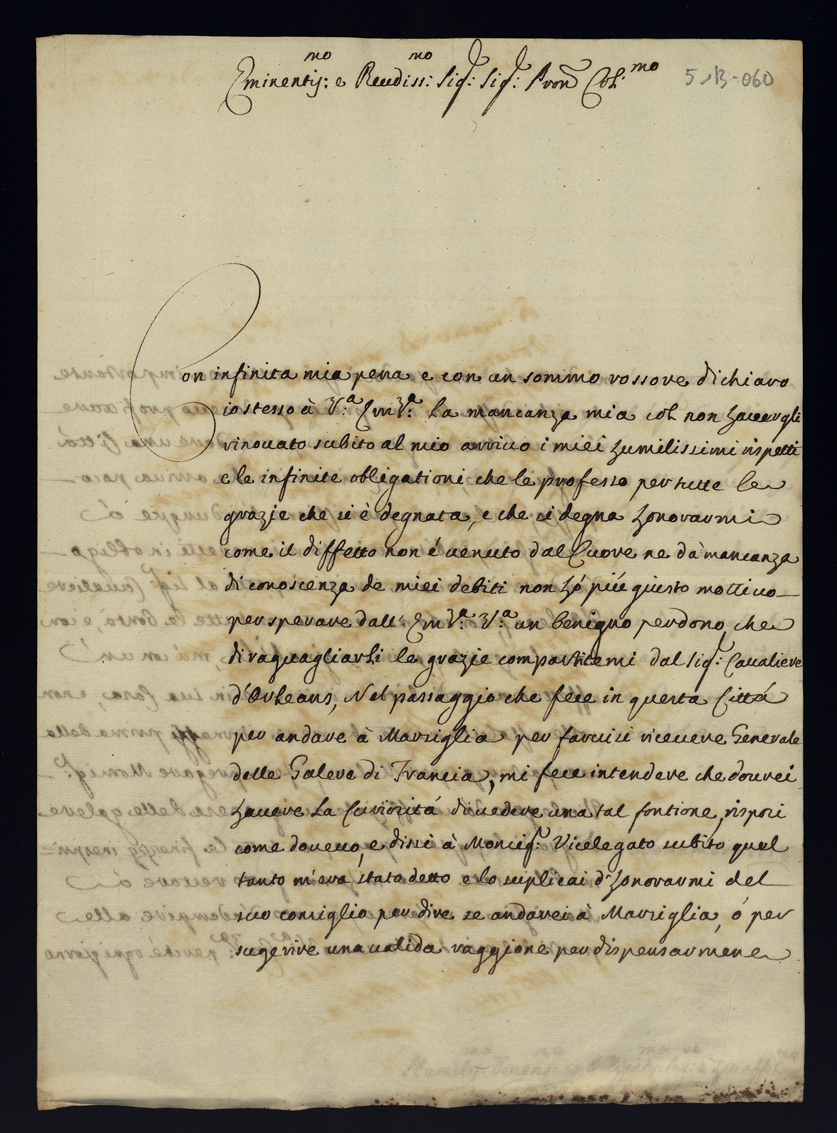 Eminentis:mo e Reudiss:mo Sig:r Sig:r Pron Col:mo
5,B-060
Con infinita mia pena e con un sommo rossore dichiaro
io stesso à V:a Em:a La mancanza mia col non hauergli
rinouato subito al mio arriuo i miei humilissimi rispetti
e le infinite obligationi che le professo per tutte le
grazie che si è degnata, e che si degna honorarmi
come il diffetto non é uenuto dal Cuore ne dà mancanza
di conoscenza de miei debiti non hó piú giusto mottiuo
per sperare dall' Em:a V:a un benigno perdono, che
di raguagliarli le grazie compartitemi dal Sig:r Caualiere
d'Orleans, Nel passaggio che fece in questa Cittá
per andare à Marsiglia per faruisi riceuere Generale
delle Galere di Francia, mi fece intendere che dourei
hauere La Curiositá di uedere una tal fontione, risposi
come doueuo, e dissi à Monsig:r Vicelegato subito quel
tanto m'era stato detto e lo suplicai d'honorarmi del
suo consiglio per dire se andarei à Marsiglia, ó per
sugerire una ualida raggione per dispensarmene